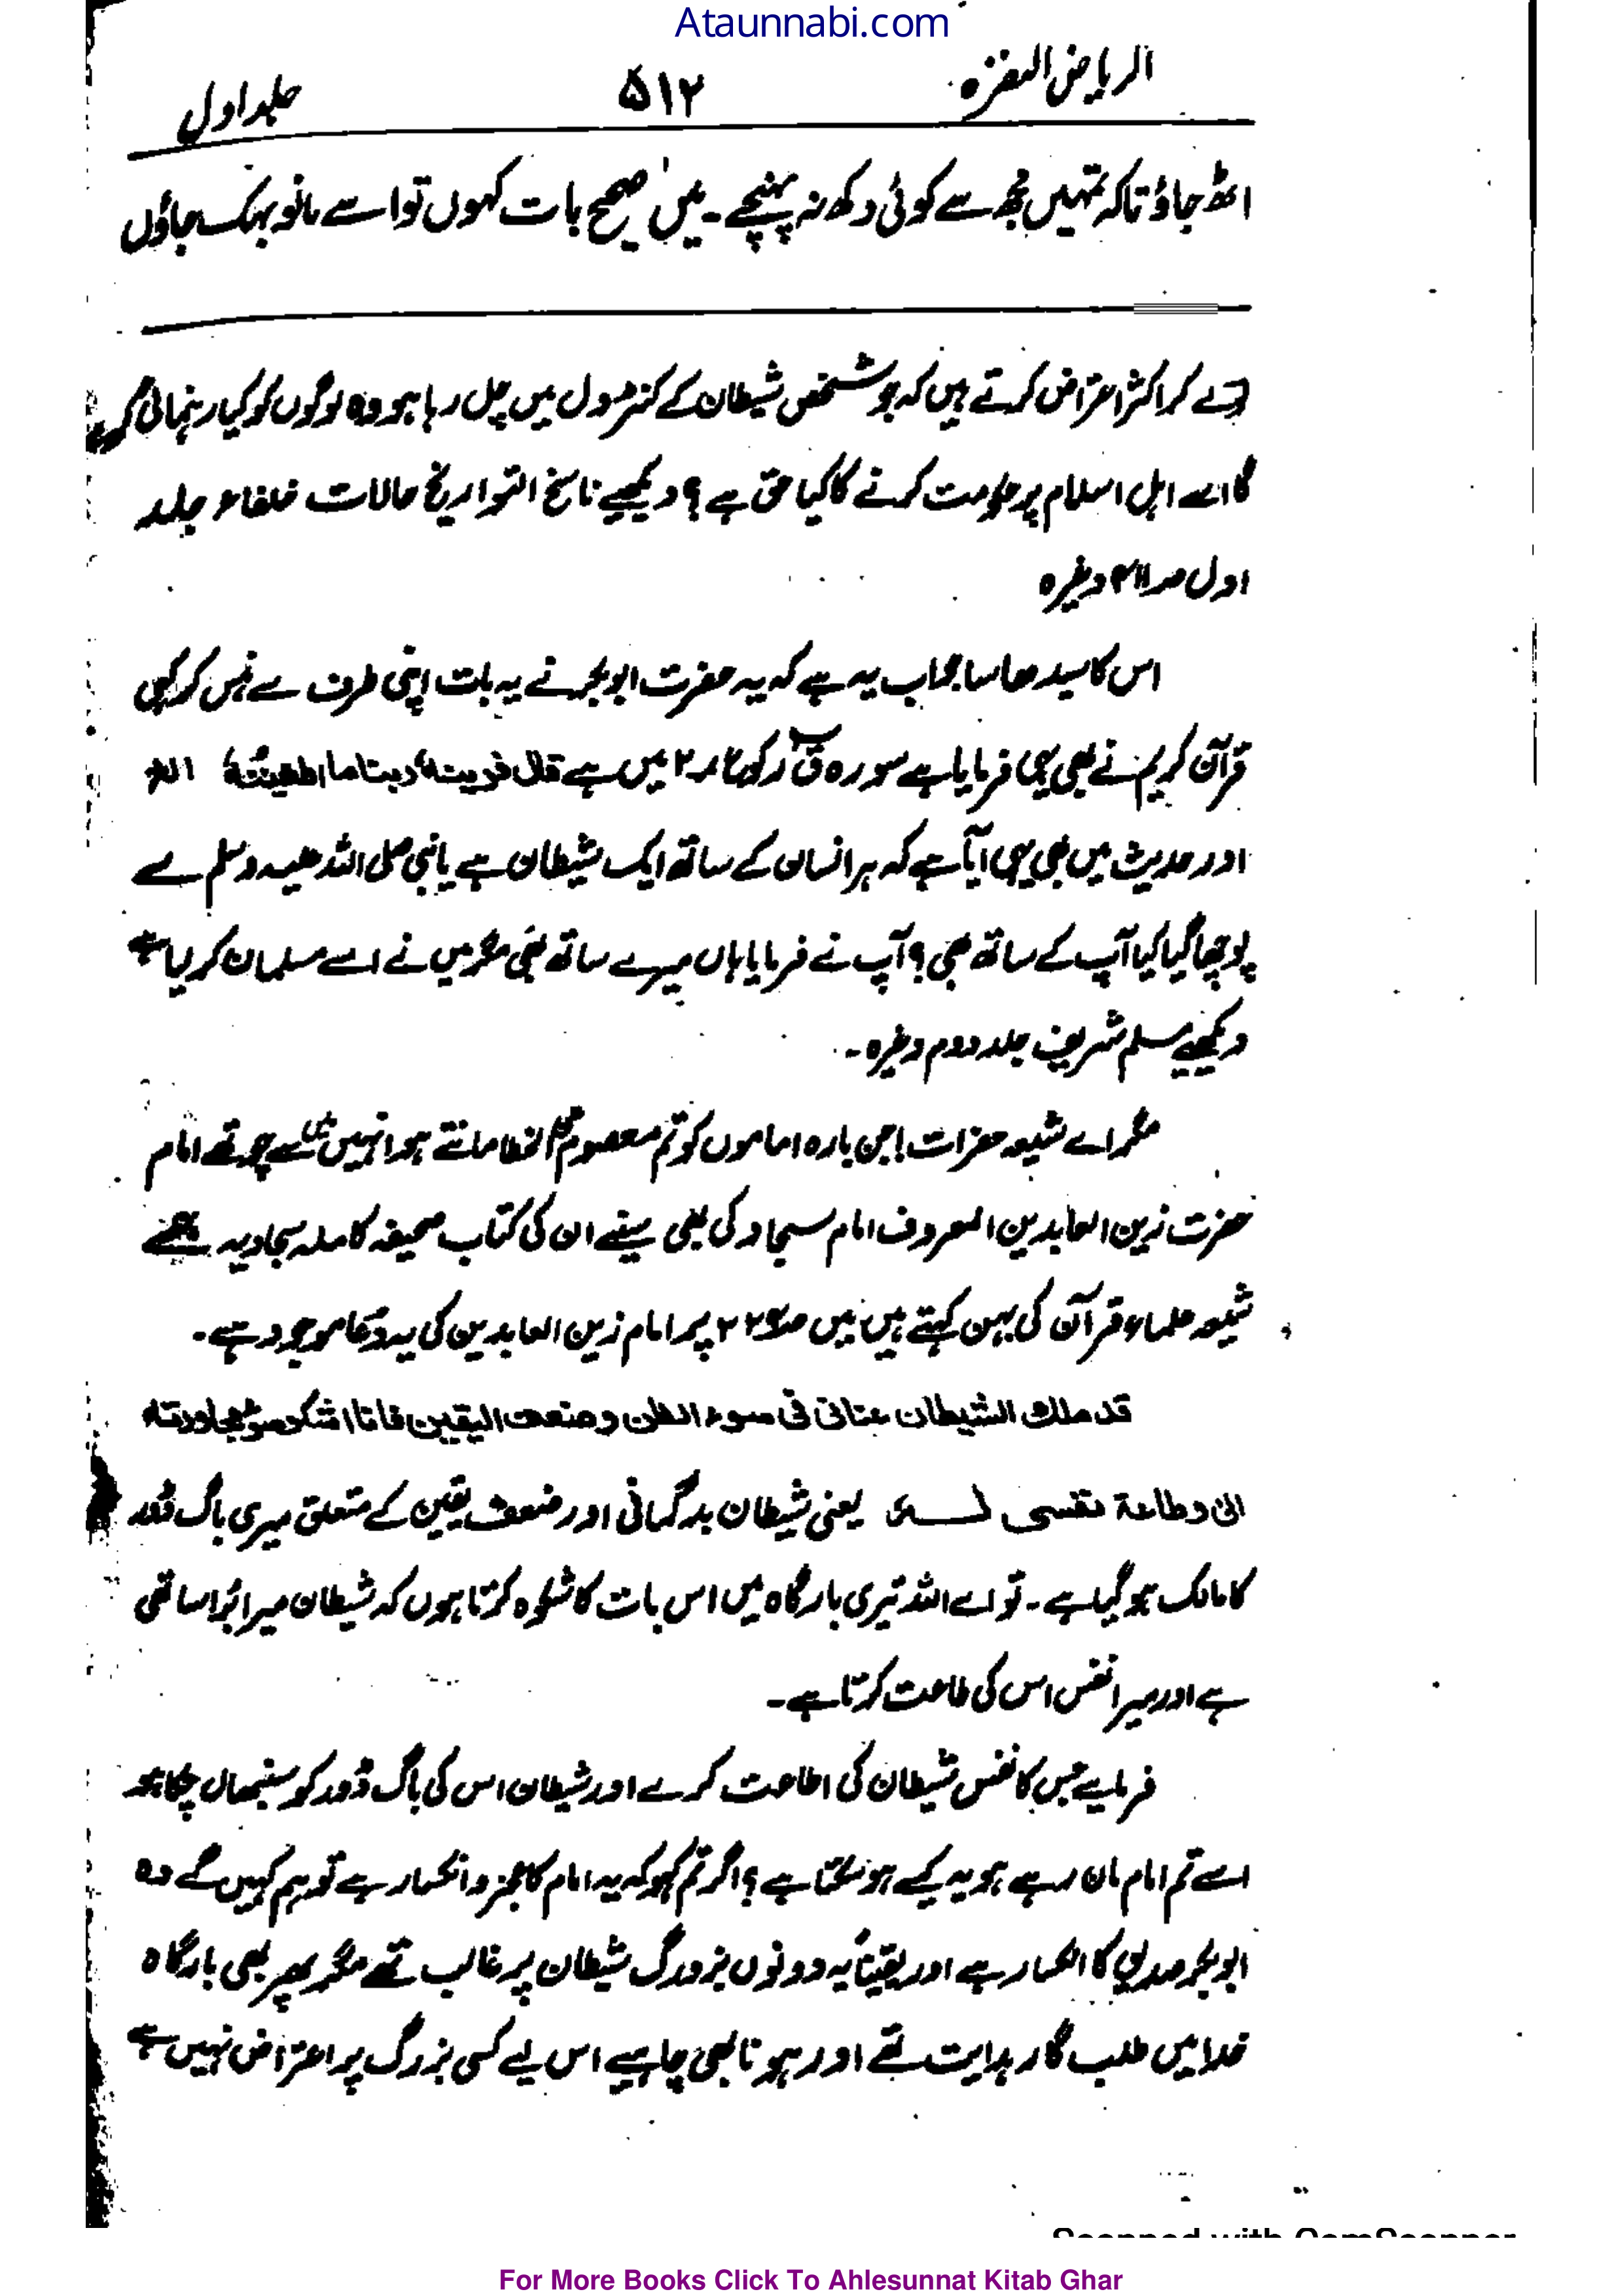 Ataunnabi.com
الریاض النضرہ ۵۱۲ جلد اول
اٹھ جاؤ تاکہ تمہیں مجھ سے کوئی دکھ نہ پہنچے۔ میں صحیح بات کہوں تو اسے مانو بہک جاؤں
دے کر اکثر اعتراض کرتے ہیں کہ جو شخص شیطان کے کنٹرول میں چل رہا ہو وہ لوگوں کو کیا رہنمائی کرے
گا اسے اہل اسلام پر حکومت کرنے کا کیا حق ہے؟ دیکھیے ناسخ التواریخ حالات خلفاء جلد
اول وغیرہ
اس کا سیدھا سا جواب یہ ہے کہ یہ حضرت ابوبکر نے یہ بات اپنی طرف سے نہیں کہی
قرآن کریم نے بھی یہی فرمایا ہے سورہ قٓ رکوع ۲ میں ہے قال قرینہٗ ربنا ما اطغیتہٗ الخ
اور حدیث میں بھی یہی آیا ہے کہ ہر انسان کے ساتھ ایک شیطان ہے یا نبی صلی اللہ علیہ وسلم سے
پوچھا گیا کیا آپ کے ساتھ بھی؟ آپ نے فرمایا ہاں میرے ساتھ بھی مگر میں نے اسے مسلمان کر لیا ہے
دیکھیے مسلم شریف جلد دوم وغیرہ۔
مگر اے شیعہ حضرات! جن بارہ اماموں کو تم معصوم عن الخطا مانتے ہو انہیں میں سے چوتھے امام
حضرت زین العابدین المعروف امام سجاد کی بھی سنیئے ان کی کتاب صحیفہ کاملہ سجادیہ جسے
شیعہ علماء قرآن کی بہن کہتے ہیں میں پر امام زین العابدین کی یہ دعا موجود ہے۔
قد ملک الشیطان عنانی فی سوء الظن و ضعف الیقین فانا اشکو سوء مجاورتہ
الی و طاعۃ نفسی لـــہ یعنی شیطان بدگمانی اور ضعف یقین کے متعلق میری باگ ڈور
کا مالک ہو گیا ہے۔ تو اے اللہ تیری بارگاہ میں اس بات کا شکوہ کرتا ہوں کہ شیطان میرا بُرا ساتھی
ہے اور میرا نفس اس کی طاعت کرتا ہے۔
فرمایے جس کا نفس شیطان کی اطاعت کرے اور شیطان اس کی باگ ڈور کو سنبھال چکا ہو
اسے تم امام مان رہے ہو یہ کیسے ہو سکتا ہے؟ اگر تم کہو کہ یہ امام کا عجز و انکسار ہے تو ہم کہیں گے وہ
ابوبکر صدیق کا انکسار ہے اور یقیناً یہ دونوں بزورگ شیطان پر غالب تھے مگر پھر بھی بارگاہ
خدا میں طلب گار ہدایت تھے اور ہونا بھی چاہیے اس لیے کسی بزرگ پر اعتراض نہیں ہے
Scanned with CamScanner
For More Books Click To Ahlesunnat Kitab Ghar